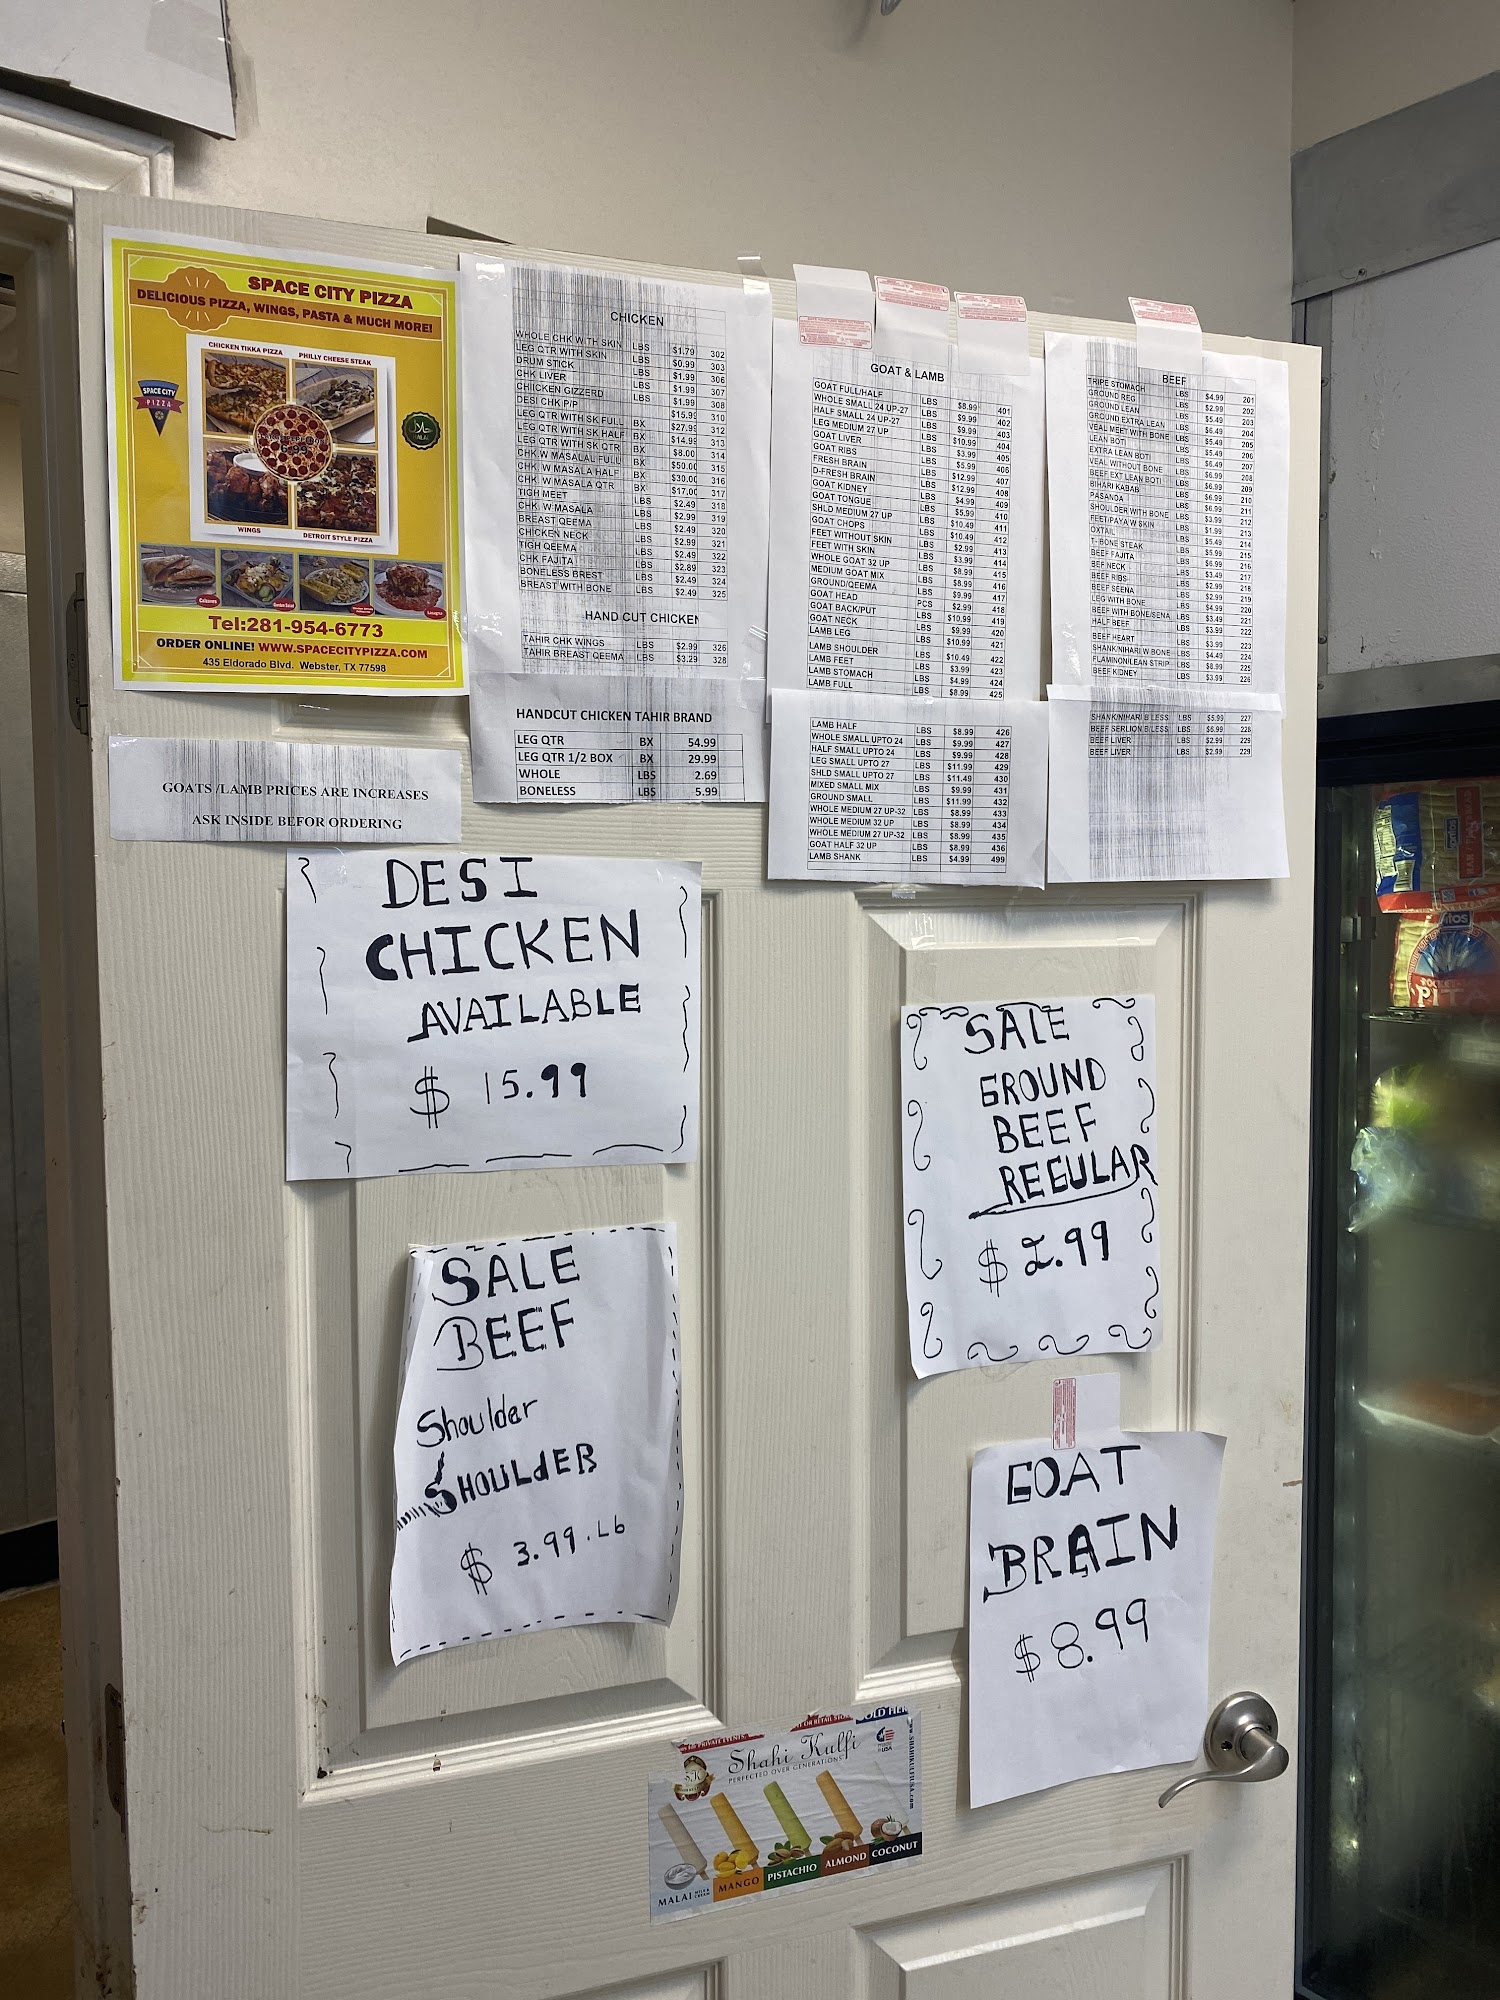 SPACE CITY PIZZA
DELICIOUS PIZZA, WINGS, PASTA & MUCH MORE!
CHICKEN TIKKA PIZZA PHILLY CHEESE STEAK
SPACE CITY
PIZZA
WINGS DETROIT STYLE PIZZA
Tel:281-954-6773
ORDER ONLINE! WWW.SPACECITYPIZZA.COM
435 Eldorado Blvd. Webster, TX 77598
GOATS /LAMB PRICES ARE INCREASES
ASK INSIDE BEFOR ORDERING
CHICKEN
WHOLE CHK WITH SKIN LBS $1.79 302
LEG QTR WITH SKIN LBS $0.99 303
DRUM STICK LBS $1.99 306
CHK LIVER LBS $1.99 307
CHICKEN GIZZERD LBS $1.99 308
DESI CHK P/P $15.99 310
LEG QTR WITH SK FULL BX $27.99 312
LEG QTR WITH SK HALF BX $14.99 313
LEG QTR WITH SK QTR BX $8.00 314
CHK W MASALAL FULL BX $50.00 315
CHK W MASALA HALF BX $30.00 316
CHK W MASALA QTR BX $17.00 317
TIGH MEET LBS $2.49 318
CHK W MASALA LBS $2.99 319
BREAST QEEMA LBS $2.49 320
CHICKEN NECK LBS $2.99 321
TIGH QEEMA LBS $2.49 322
CHK FAJITA LBS $2.89 323
BONELESS BREST LBS $2.49 324
BREAST WITH BONE LBS $2.49 325
HAND CUT CHICKEN
TAHIR CHK WINGS LBS $2.99 326
TAHIR BREAST QEEMA LBS $3.29 328
HANDCUT CHICKEN TAHIR BRAND
LEG QTR BX 54.99
LEG QTR 1/2 BOX BX 29.99
WHOLE LBS 2.69
BONELESS LBS 5.99
GOAT & LAMB
GOAT FULL/HALF LBS $8.99 401
WHOLE SMALL 24 UP-27 LBS $9.99 402
HALF SMALL 24 UP-27 LBS $9.99 403
LEG MEDIUM 27 UP LBS $10.99 404
GOAT LIVER LBS $3.99 405
GOAT RIBS LBS $5.99 406
FRESH BRAIN LBS $12.99 407
D-FRESH BRAIN LBS $12.99 408
GOAT KIDNEY LBS $4.99 409
GOAT TONGUE LBS $5.99 410
SHLD MEDIUM 27 UP LBS $10.49 411
GOAT CHOPS LBS $10.49 412
FEET WITHOUT SKIN LBS $2.99 413
FEET WITH SKIN LBS $3.99 414
WHOLE GOAT 32 UP LBS $8.99 415
MEDIUM GOAT MIX LBS $8.99 416
GROUND/QEEMA LBS $9.99 417
GOAT HEAD PCS $2.99 418
GOAT BACK/PUT LBS $10.99 419
GOAT NECK LBS $9.99 420
LAMB LEG LBS $10.99 421
LAMB SHOULDER LBS $10.49 422
LAMB FEET LBS $3.99 423
LAMB STOMACH LBS $4.99 424
LAMB FULL LBS $8.99 425
LAMB HALF LBS $8.99 426
WHOLE SMALL UPTO 24 LBS $9.99 427
HALF SMALL UPTO 24 LBS $9.99 428
LEG SMALL UPTO 27 LBS $11.99 429
SHLD SMALL UPTO 27 LBS $11.49 430
MIXED SMALL MIX LBS $9.99 431
GROUND SMALL LBS $11.99 432
WHOLE MEDIUM 27 UP-32 LBS $8.99 433
WHOLE MEDIUM 32 UP LBS $8.99 434
WHOLE MEDIUM 27 UP-32 LBS $8.99 435
GOAT HALF 32 UP LBS $8.99 436
LAMB SHANK LBS $4.99 499
BEEF
TRIPE STOMACH LBS $4.99 201
GROUND REG LBS $2.99 202
GROUND LEAN LBS $5.49 203
GROUND EXTRA LEAN LBS $5.49 204
VEAL MEET WITH BONE LBS $5.49 205
LEAN BOTI LBS $5.49 206
EXTRA LEAN BOTI LBS $6.49 207
VEAL WITHOUT BONE LBS $6.99 208
BEEF EXT LEAN BOTI LBS $6.99 209
BIHARI KABAB LBS $6.99 210
PASANDA LBS $6.99 211
SHOULDER WITH BONE LBS $3.99 212
FEET/PAYA W SKIN LBS $1.99 213
OXTAIL LBS $5.49 214
T- BONE STEAK LBS $6.99 215
BEEF FAJITA LBS $6.99 216
BEF NECK LBS $3.49 217
BEF RIBS LBS $2.99 218
BEEF SEENA LBS $2.99 219
LEG WITH BONE LBS $4.99 220
BEEF WITH BONE/SENA LBS $3.49 221
HALF BEEF LBS $3.99 222
BEEF HEART LBS $3.99 223
SHANK/NIHARI W BONE LBS $4.49 224
FLAMINON/LEAN STRIP LBS $8.99 225
BEEF KIDNEY LBS $3.99 226
SHANK/NIHARI B LESS LBS $5.99 227
BEEF SERLION B/LESS LBS $8.99 228
BEEF LIVER LBS $2.99 229
BEEF LIVER LBS $2.99 229
DESI
CHICKEN
AVAILABLE
$ 15.99
SALE
GROUND
BEEF
REGULAR
$ 2.99
SALE
BEEF
Shoulder
SHOULdER
$ 3.99.Lb
GOAT
BRAIN
$8.99
SOLD HERE
Shahi Kulfi
PERFECTED OVER GENERATIONS
MALAI MANGO PISTACHIO ALMOND COCONUT